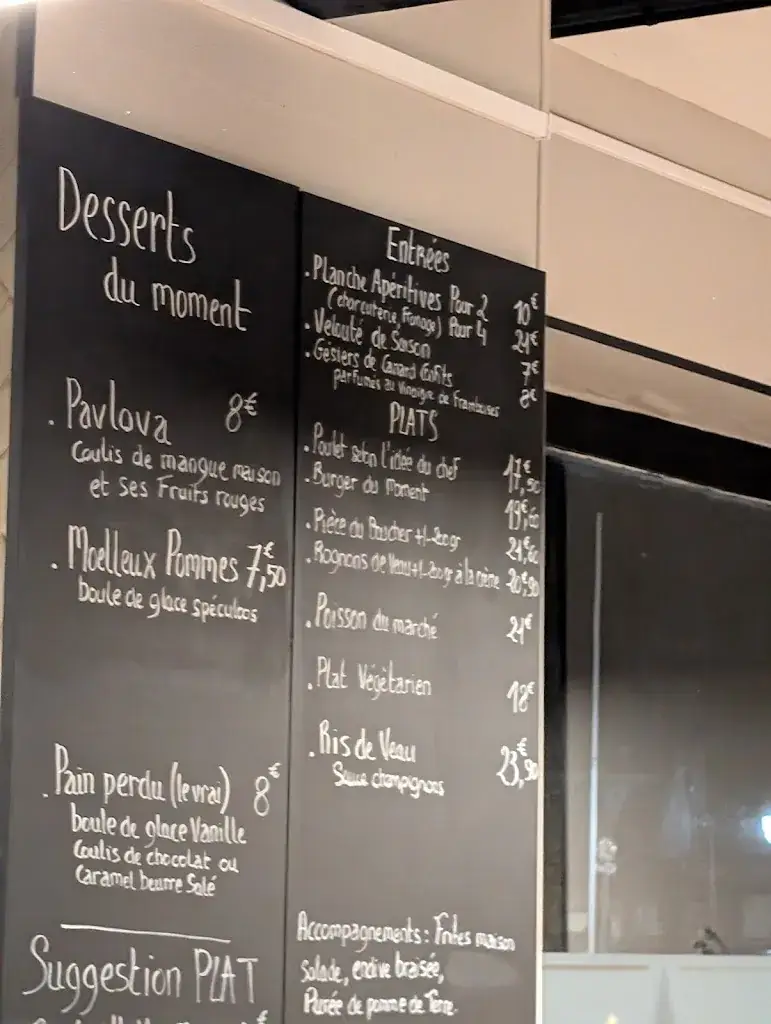 Desserts
du moment
. Pavlova 8€
Coulis de mangue maison
et ses Fruits rouges
. Moelleux Pommes 7,50€
boule de glace spéculoos
. Pain perdu (le vrai) 8€
boule de glace Vanille
Coulis de chocolat ou
Caramel beurre Salé
Suggestion PLAT
Entrées
. Planche Apéritives Pour 2 10€
(charcuterie, fromage) Pour 4 21€
. Velouté de Saison 7€
. Gésiers de Canard Confits 8€
parfumés au Vinaigre de Framboises
PLATS
. Poulet selon l'idée du chef 17,50€
. Burger du Moment
. Pièce du Boucher +/- 200gr
. Rognons de Veau +/- 200gr à la crème 20,90€
. Poisson du marché 21€
. Plat Végétarien 18€
. Ris de Veau 23,90€
Sauce champignons
Accompagnements : Frites maison
Salade, endive braisée,
Purée de pomme de Terre.